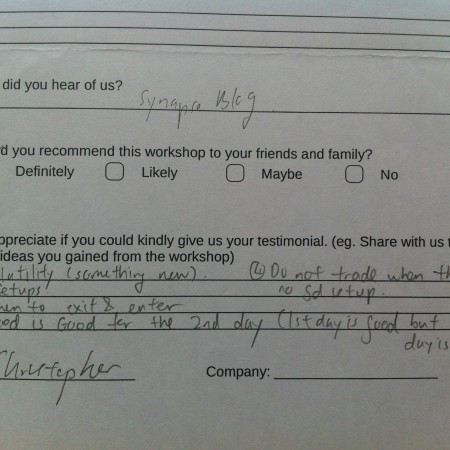 did you hear of us?
Synapse Blog
d you recommend this workshop to your friends and family?
Definitely Likely Maybe No
ppreciate if you could kindly give us your testimonial. (eg. Share with us t
ideas you gained from the workshop)
latility (something new). (4) Do not trade when th
etups no Sd setup.
hen to exit & enter
od is Good for the 2nd day (1st day is good but
day is
Christopher Company: